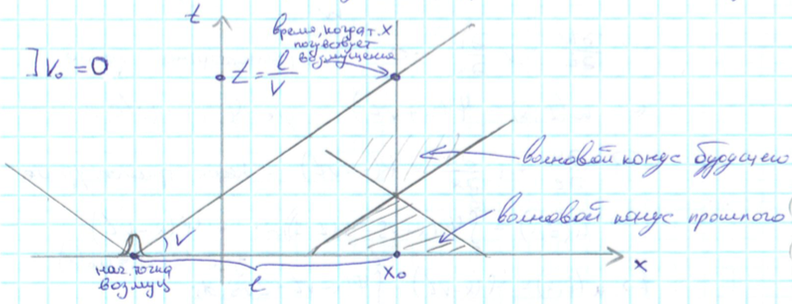 t
время, когда т. X
почувствует
возмущение
]V₀ = 0
t = l/V
волновой конус будущего
волновой конус прошлого
V
нач. точка
возмущ
l
X₀
x